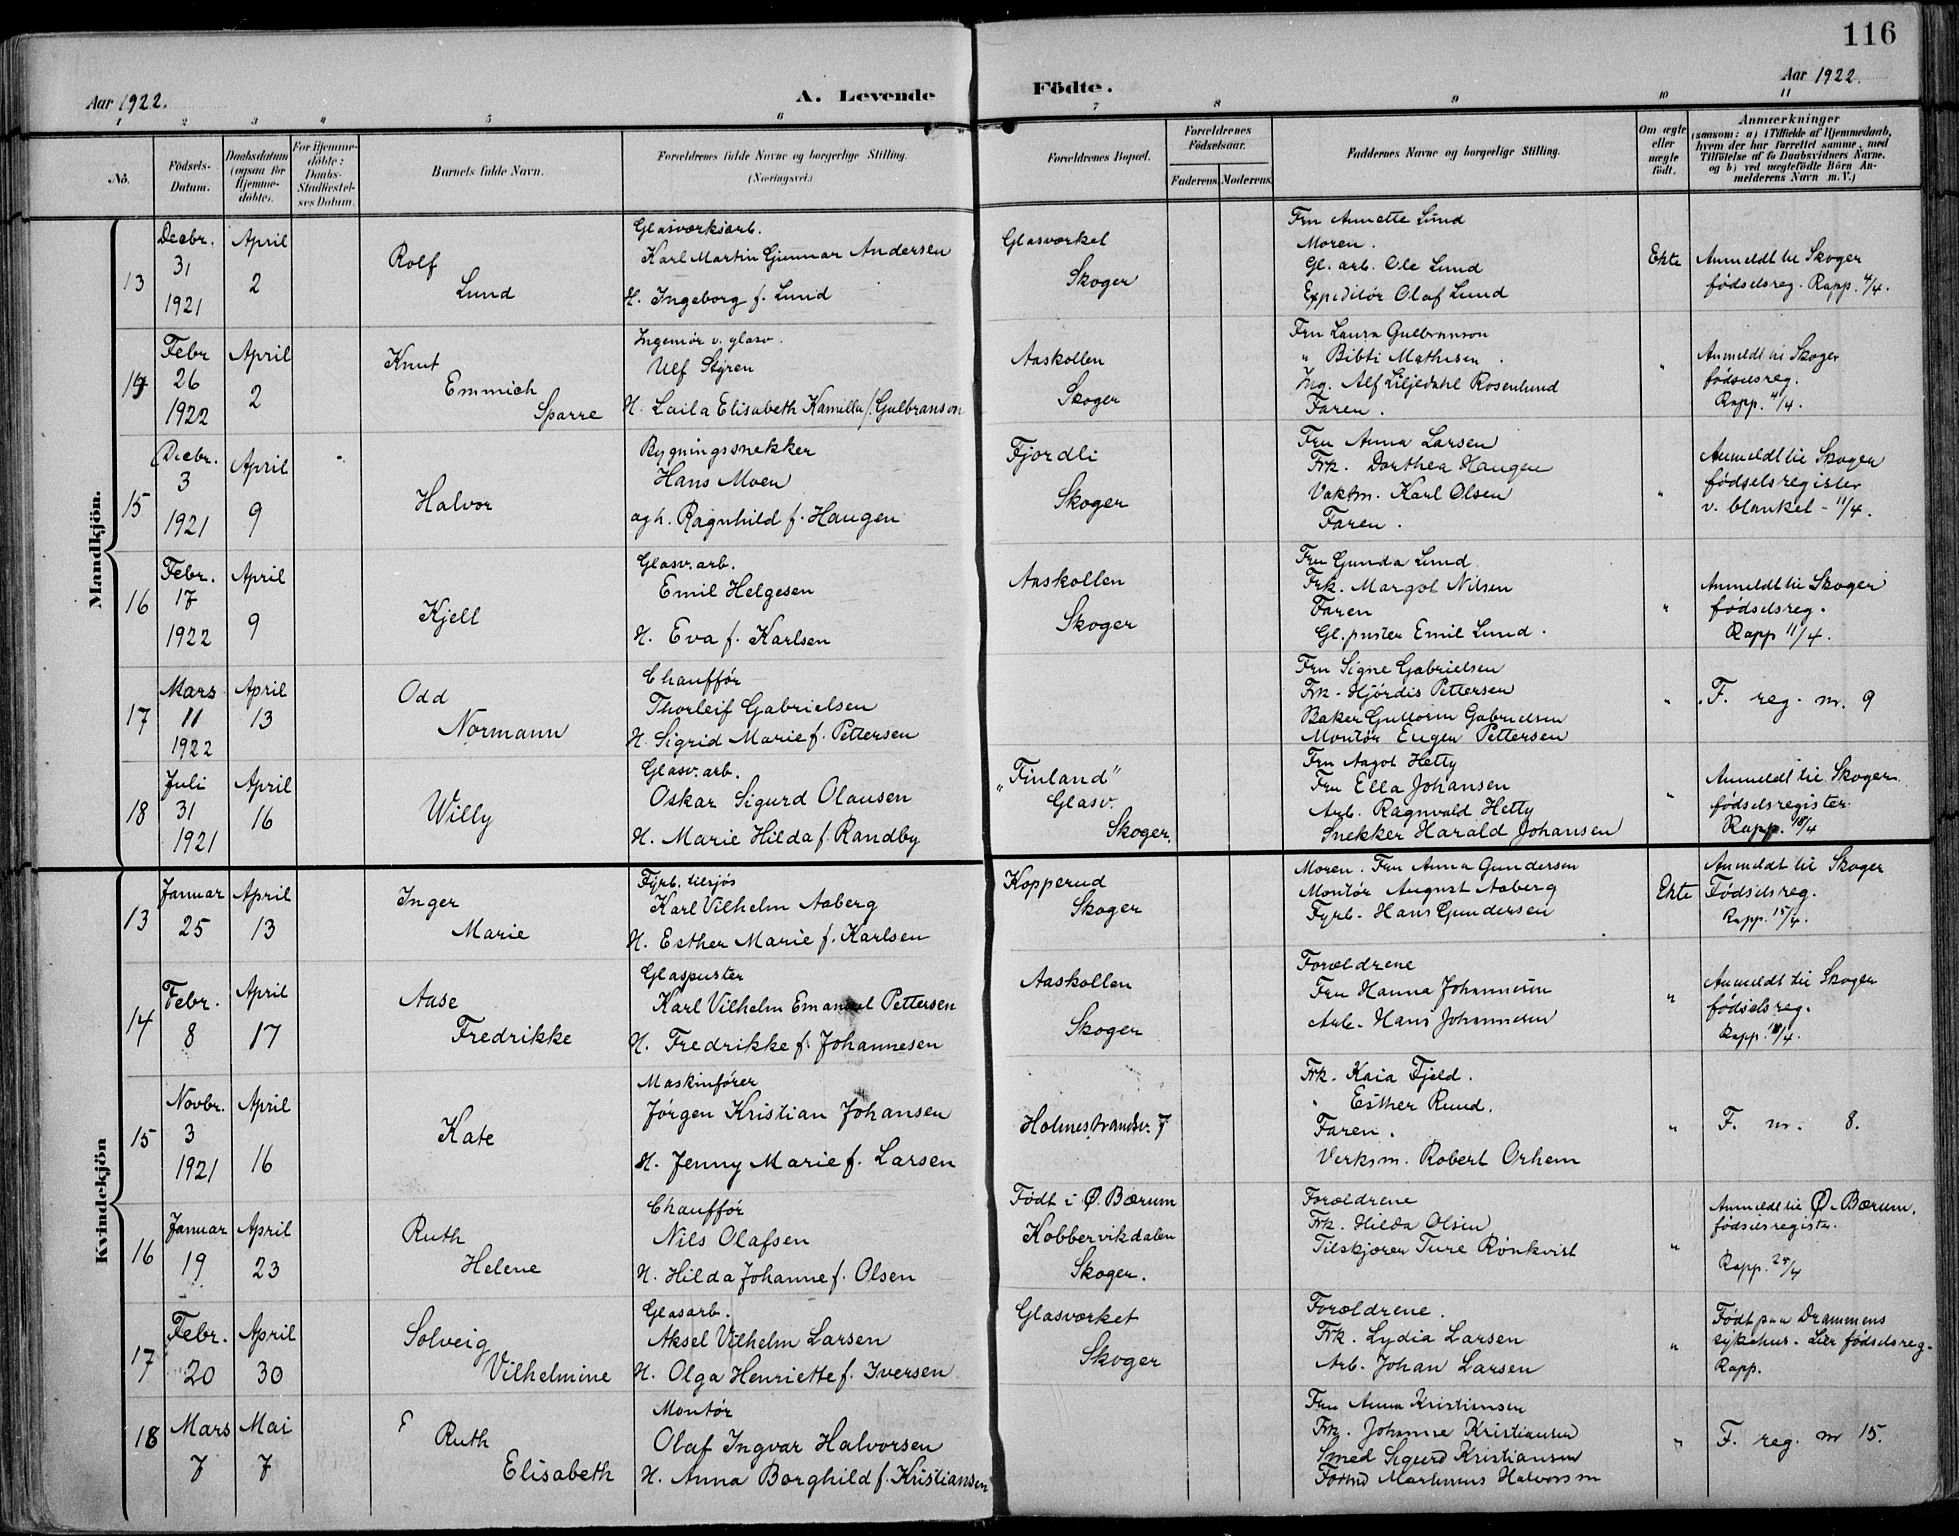 116
Aar 1922.
A. Levende
Födte.
Aar 1922.
1 2 3 4 5 6 7 8 9 10 11
No.
Födsels-
Datum.
Daabsdatum
(ogsaa for
Hjemme-
döbte).
For Hjemme-
döbte:
Daabs-
Stadfæstel-
ses Datum.
Barnets fulde Navn.
Forældrenes fulde Navne og borgerlige Stilling.
(Næringsvei.)
Forældrenes Bopæl.
Forældrenes
Födselsaar.
Faderens. Moderens.
Faddernes Navne og borgerlige Stilling.
Om ægte
eller
uægte
födt.
Anmærkninger
(saasom: a) i Tilfælde af Hjemmedaab,
hvem der har forrettet samme, med
Tilföielse af to Daabsvidners Navne.
og b) ved uægtefödte Börn An-
melderens Navn m. V.)
Mandkjön.
13
Decbr.
31
1921
April
2
Rolf
Lund
Glasværksarb.
Karl Martin Gunnar Andersen
H. Ingeborg f. Lund
Glasværket
Skoger
Fru Annette Lund
Moren.
Gl. arb. Ole Lund
Expeditör Olaf Lund
Ekte
Anmeldt til Skoger
fødselsreg. Rapp. 4/4.
14
Febr
26
1922
April
2
Knut
Emmich
Sparre
Ingeniør v. glasv.
Ulf Styren
H. Laila Elisabeth Kamilla f. Gulbranson
Aaskollen
Skoger
Fru Laura Gulbranson
" Bibti Mathisen.
Ing. Alf Liljedahl Rosenlund
Faren.
"
Anmeldt til Skoger
fødselsreg.
Rapp. 4/4.
15
Decbr.
3
1921
April
9
Halvor
Bygningssnekker
Hans Moen
agh. Ragnhild f. Haugen
Fjordli
Skoger
Fru Anna Larsen
Frk. Dorthea Haugen
Vaktm. Karl Olsen
Faren.
"
Anmeldt til Skoger
fødselsregister
v. blanket - 11/4.
16
Febr.
17
1922
April
9
Kjell
Glasv. arb.
Emil Helgesen
H. Eva f. Karlsen
Aaskollen
Skoger
Fru Gunda Lund
Frk. Margot Nilsen
Faren
Gl. puster Emil Lund.
"
Anmeldt til Skoger
fødselsreg.
Rapp 11/4.
17
Mars
11
1922
April
13
Odd
Normann
Chauffør
Thorleif Gabrielsen
H. Sigrid Marie f. Pettersen
Fru Signe Gabrielsen
Frk. Hjørdis Pettersen
Baker Guttorm Gabrielsen
Montør Eugen Pettersen
"
F. reg. nr. 9
18
Juli
31
1921
April
16
Willy
Glasv. arb.
Oskar Sigurd Olausen
H. Marie Hilda f. Randby
"Finland"
Glasv.
Skoger.
Fru Aagot Hetty
Fru Ella Johansen
Arb. Ragnvald Hetty
Snekker Harald Johansen
"
Anmeldt til Skoger
fødselsregister.
Rapp. 18/4
Kvindekjön
13
Januar
25
April
13
Inger
Marie
Fyrb. tilsjøs
Karl Vilhelm Aaberg
H. Esther Marie f. Karlsen
Kopperud
Skoger
Moren. Fru Anna Gundersen
Montør August Aaberg
Fyrb. Hans Gundersen
Ekte
Anmeldt til Skoger
Fødselsreg.
Rapp. 15/4.
14
Febr.
8
April
17
Aase
Fredrikke
Glaspuster
Karl Vilhelm Emanuel Pettersen
H. Fredrikke f. Johannesen
Aaskollen
Skoger
Forældrene
Fru Hanna Johannesen
Arb. Hans Johannesen
"
Anmeldt til Skoger
fødselsreg.
Rapp. 18/4.
15
Novbr.
3
1921
April
16
Kate
Maskinfører
Jørgen Kristian Johansen
H. Jenny Marie f. Larsen
Holmestrandsv. 7
Frk. Kaia Fjeld.
" Esther Ruud.
Faren.
Verksm. Robert Orhem
"
F. nr. 8.
16
Januar
19
April
23
Ruth
Helene
Chauffør
Nils Olafsen
H. Hilda Johanne f. Olsen
Født i Ø. Bærum
Kobbervikdalen
Skoger.
Forældrene
Frk. Hilda Olsen
Tilskjærer Ture Rønkvist
"
Anmeldt til Ø. Bærum.
fødselsregister.
Rapp. 25/4
17
Febr.
20
April
30
Solveig
Vilhelmine
Glasarb.
Aksel Vilhelm Larsen
H. Olga Henriette f. Iversen
Glasværket
Skoger
Forældrene.
Frk. Lydia Larsen
Arb. Johan Larsen
"
Født paa Drammens
sykehus. Lier fødselsreg.
Rapp.
18
Mars
7
Mai
7
Ruth
Elisabeth
Montør
Olaf Ingvar Halvorsen
H. Anna Borghild f. Kristiansen
Fru Anna Kristiansen
Frk. Johanne Kristiansen
Smed Sigurd Kristiansen
Martinius Halvorsen
"
F. reg. nr 15.